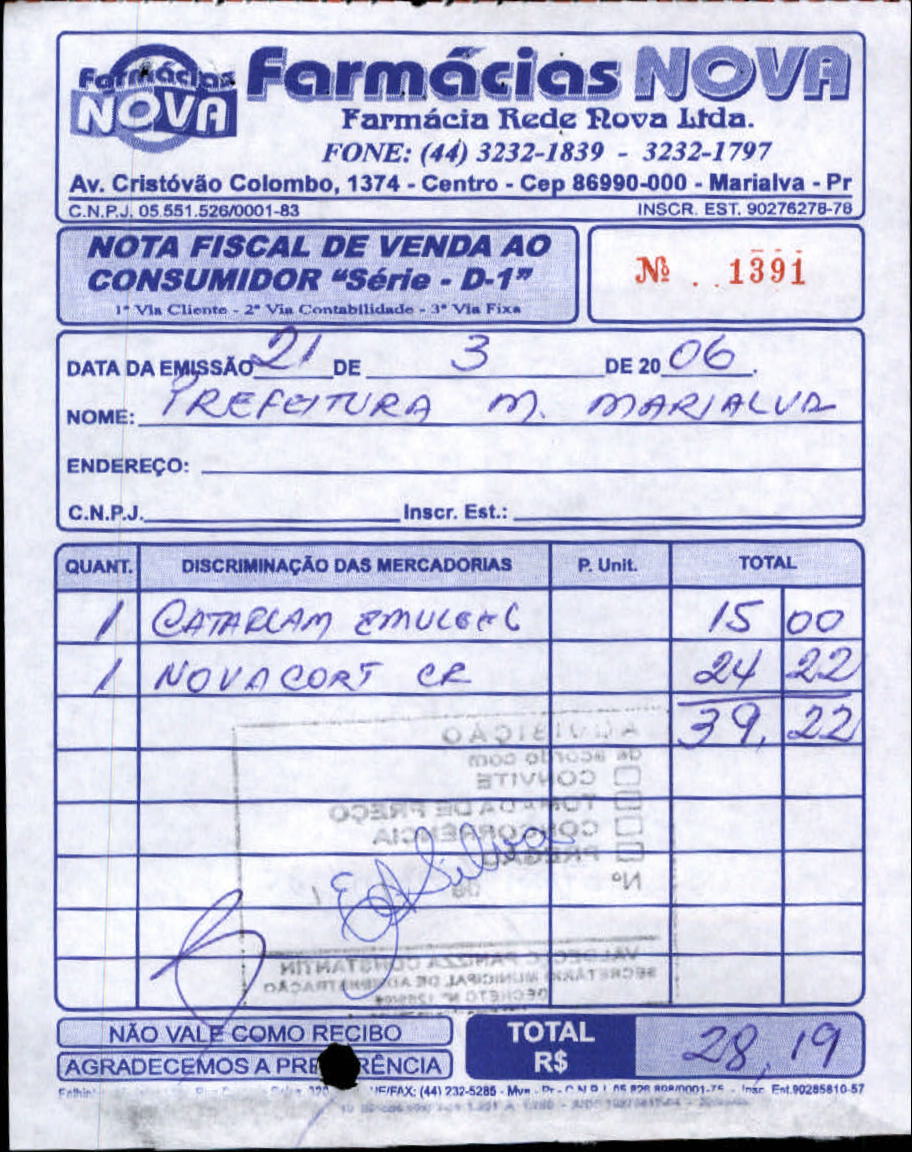 Farmácias NOVA
Farmácias NOVA
Farmácia Rede Nova Ltda.
FONE: (44) 3232-1839 - 3232-1797
Av. Cristóvão Colombo, 1374 - Centro - Cep 86990-000 - Marialva - Pr
C.N.P.J. 05.551.526/0001-83 INSCR. EST. 90276278-76
NOTA FISCAL DE VENDA AO
CONSUMIDOR "Série - D-1"
Nº 1391
1ª Via Cliente - 2ª Via Contabilidade - 3ª Via Fixa
DATA DA EMISSÃO 21 DE 3 DE 20 06.
NOME: PREFEITURA M. MARIALVA
ENDEREÇO:
C.N.P.J. Inscr. Est.:
QUANT. DISCRIMINAÇÃO DAS MERCADORIAS P. Unit. TOTAL
1 CATARLAM EMULGEL 15 00
1 NOVACORT CR 24 22
39, 22
AQUISIÇÃO
de acordo com
CONVITE
TOMADA DE PREÇO
CONCORRÊNCIA
PREGÃO
Nº
VALDEC C PANIZZA CONSTANTIN
SECRETÁRIO MUNICIPAL DE ADMINISTRAÇÃO
DECRETO Nº
NÃO VALE COMO RECIBO
AGRADECEMOS A PREFERÊNCIA
TOTAL
R$ 28,19
FAX: (44) 232-5285 - Pr - Insc. Est.90285810-57